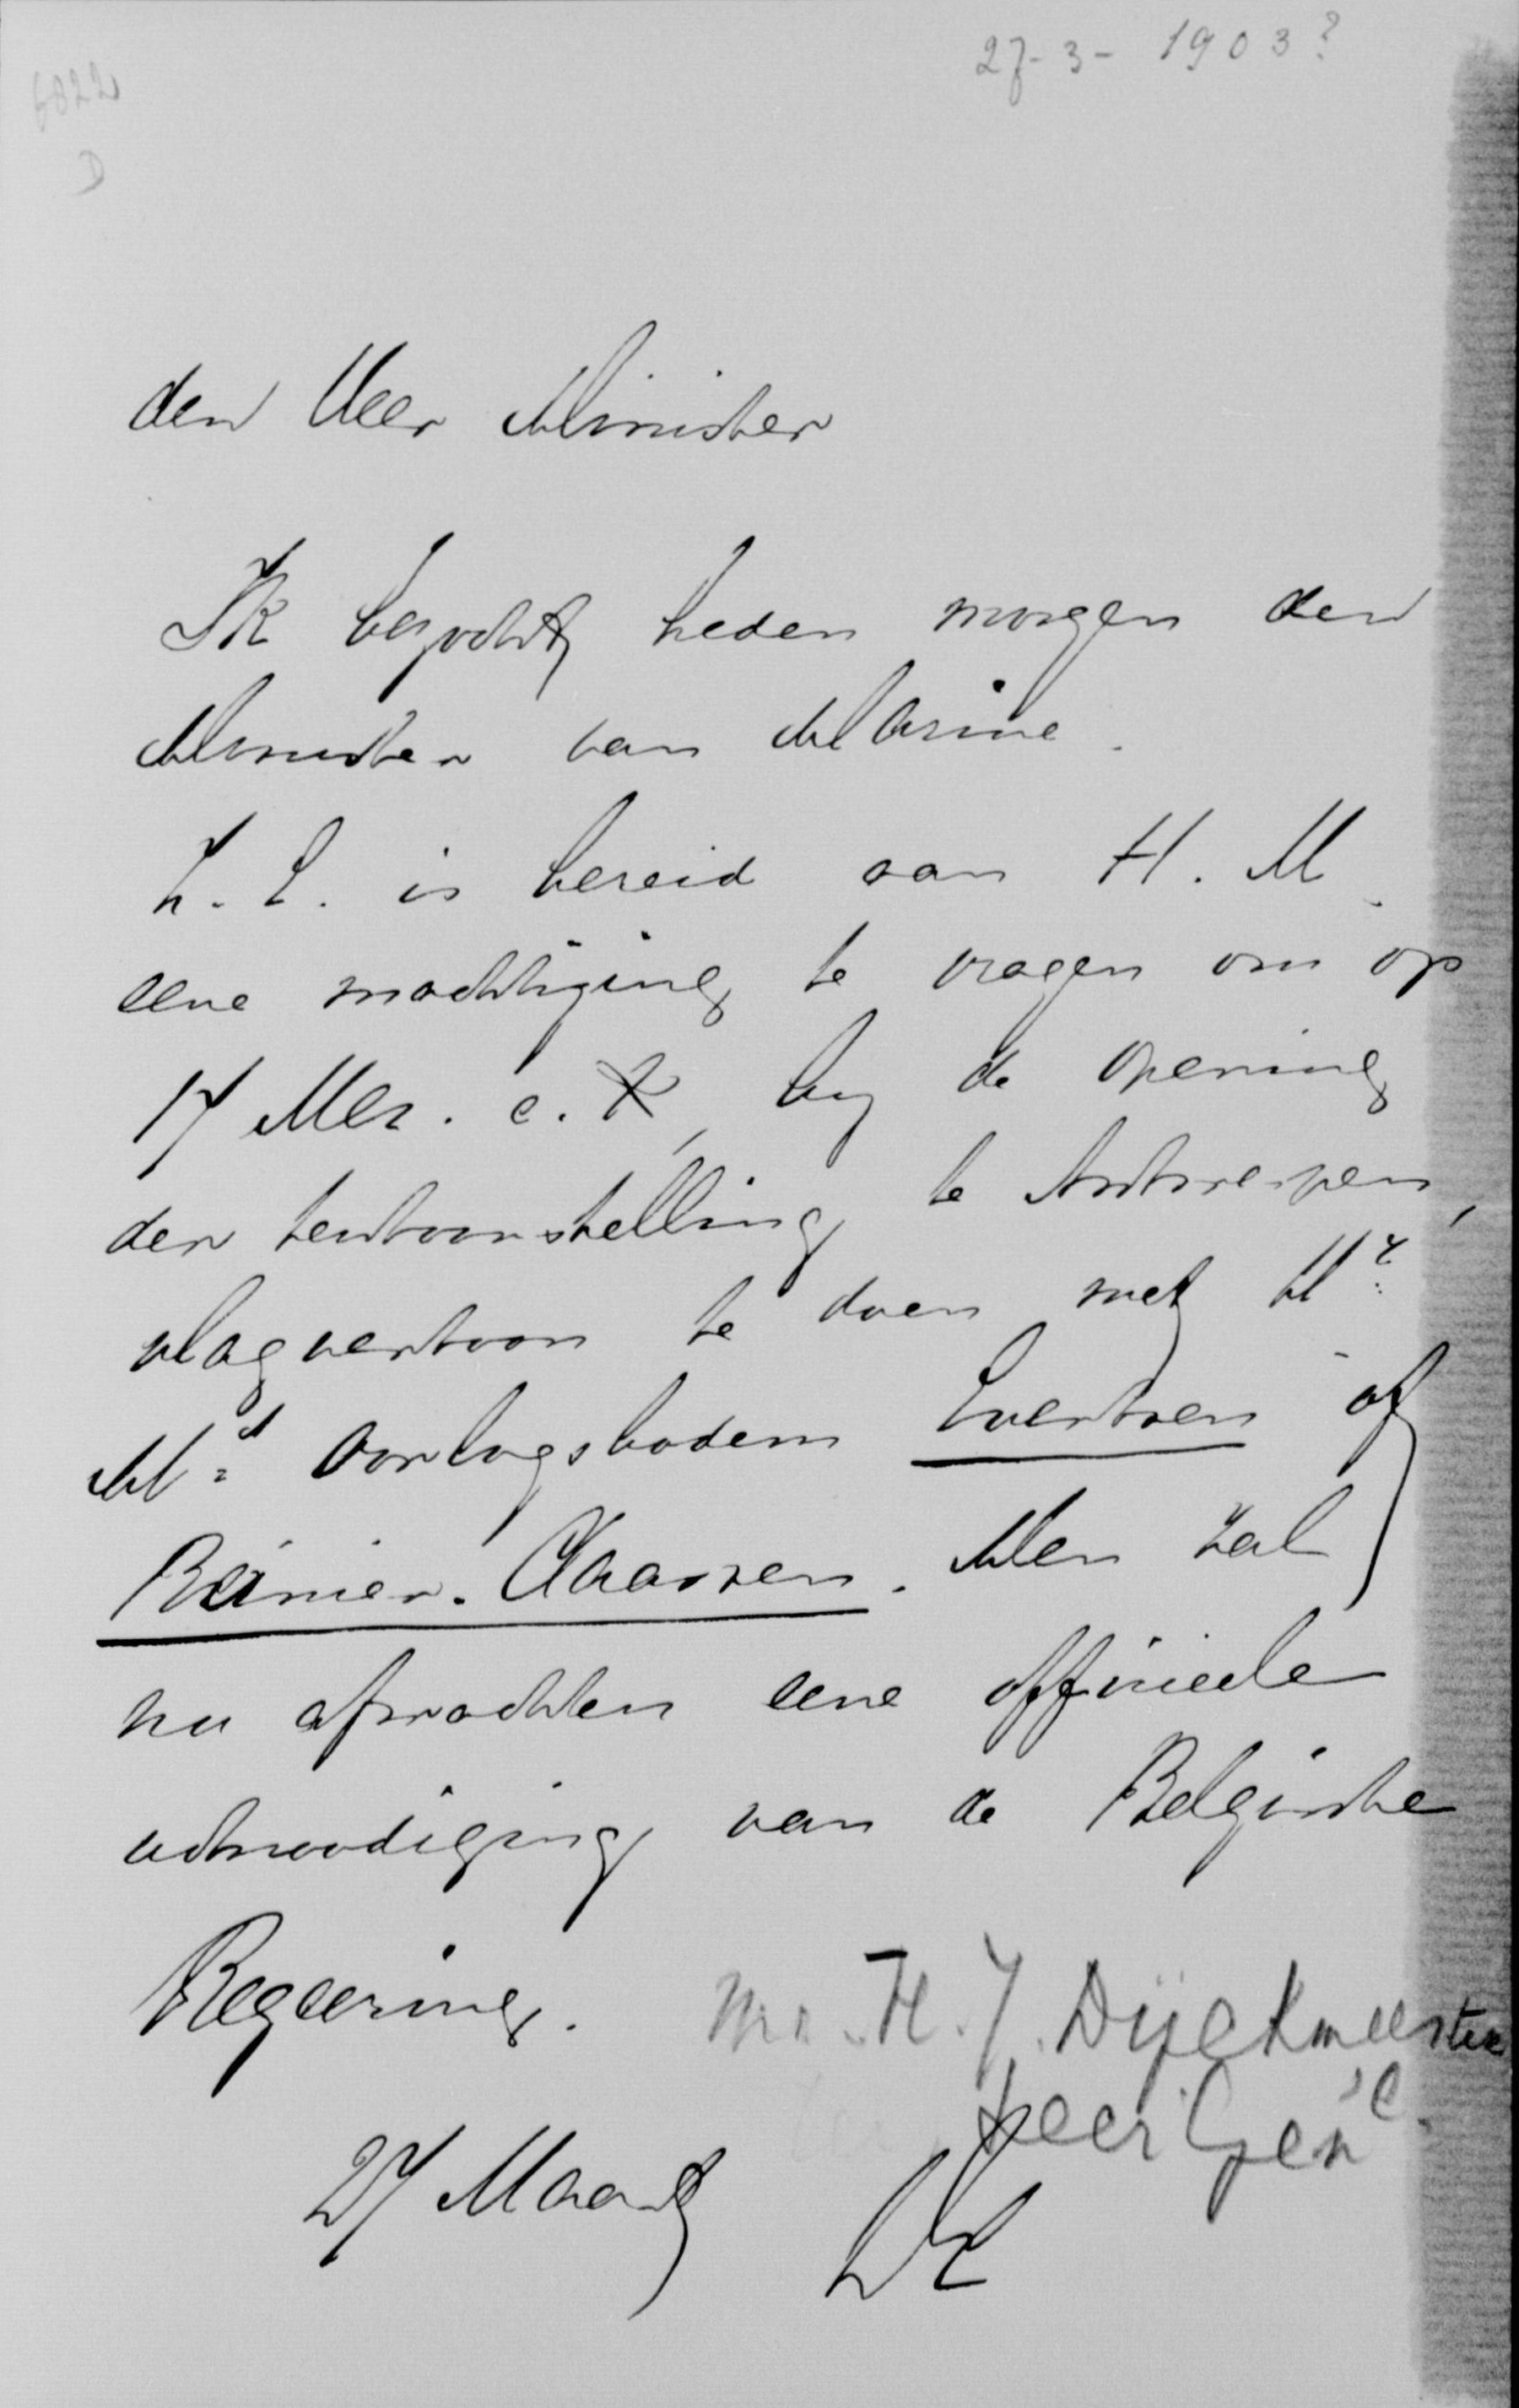 27-3-1903?
6822
D
den Heer Minister
Ik bezocht heden morgen den
Minister van Marine.
Z. E. is bereid aan H. M.
eene machtiging te vragen om op
17 Mei. e. k, bij de opening
der tentoonstelling te Antwerpen,
vlagvertoon te doen met Hr
Ms oorlogsbodem Evertsen of
Reinier. Claassen. Men zal
nu afwachten eene officieele
uitnoodiging van de Belgische
Regeering.
Mr. H. J. Dijckmeester
27 Maart